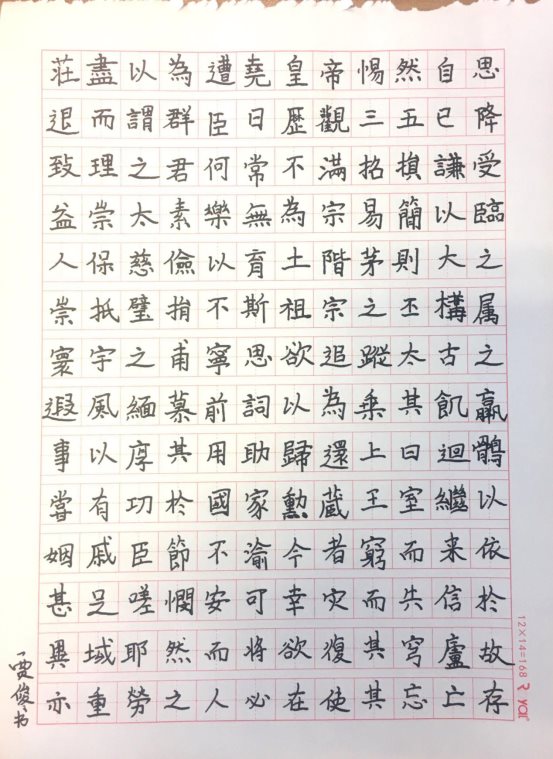 莊盡以為遭堯皇帝惕然自思
退而謂群臣曰歷觀三五已降
致理之君何常不滿招損謙受
益崇太素樂無為宗易簡以臨
人保慈儉以育土階茅則大之
崇抵璧捐不斯祖宗之丕構属
寰宇之甫寧思欲追蹤太古之
遐風緬慕前詞以為乘其飢羸
事以厚其用助歸還上曰迴鶻
嘗有功於國家勲蔵王室繼以
姻戚臣節不渝今者窮而来依
甚足嗟憫安可幸灾而失信於
異域耶然而将欲復其穹廬故
亦重勞之人必在使其忘亡存
賈俊书
12×14=168